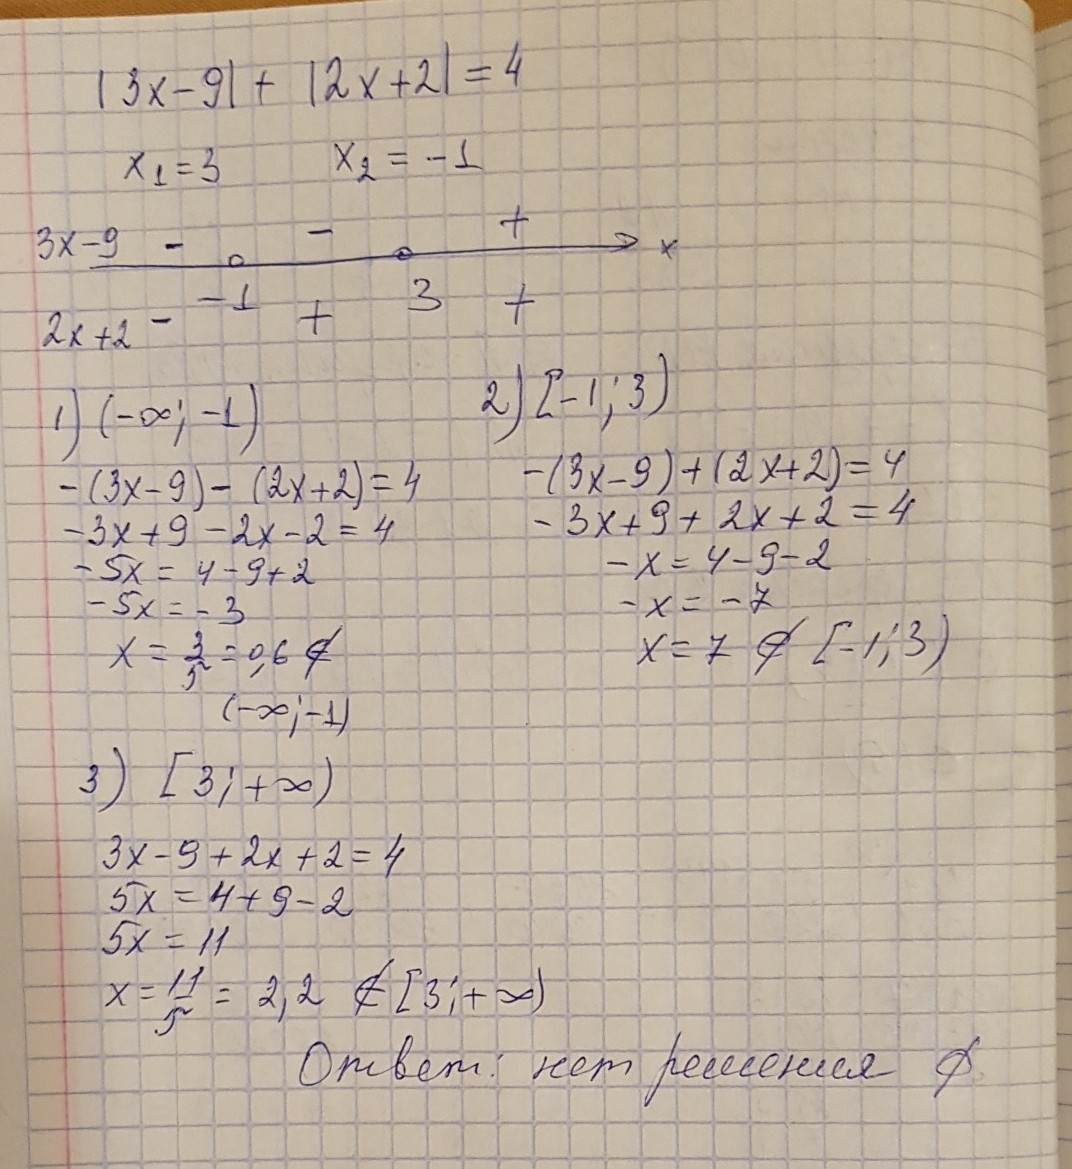 |3x-9| + |2x+2| = 4
x₁=3 x₂ = -1
3x-9 - - + x
-1 3
2x+2 - + +
1) (-∞; -1)
-(3x-9) - (2x+2) = 4
-3x+9 -2x-2 = 4
-5x = 4-9+2
-5x = -3
x = 3/5 = 0,6 ∉
(-∞; -1)
2) [-1; 3)
-(3x-9)+(2x+2) = 4
-3x+9+2x+2 = 4
-x = 4-9-2
-x = -7
x = 7 ∉ [-1; 3)
3) [3; +∞)
3x-9+2x+2=4
5x = 4+9-2
5x = 11
x = 11/5 = 2,2 ∉ [3; +∞)
Ответ: нет решения ∅